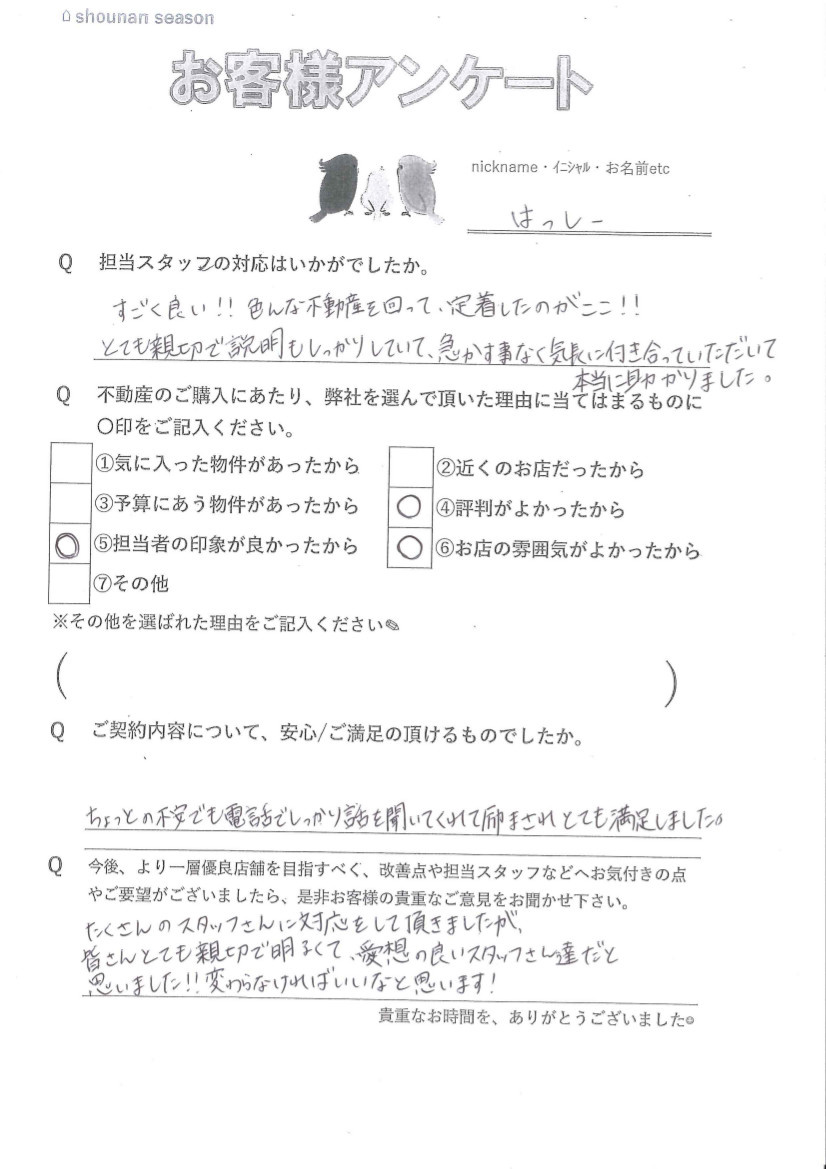 shounan season
お客様アンケート
nickname・ｲﾆｼｬﾙ・お名前etc
はっしー
Q 担当スタッフの対応はいかがでしたか。
すごく良い!! 色んな不動産を回って、定着したのがここ!!
とても親切で説明もしっかりしていて、急かす事なく気長に付き合っていただいて
本当に助かりました。
Q 不動産のご購入にあたり、弊社を選んで頂いた理由に当てはまるものに
〇印をご記入ください。
①気に入った物件があったから ②近くのお店だったから
③予算にあう物件があったから ○ ④評判がよかったから
◎ ⑤担当者の印象が良かったから ○ ⑥お店の雰囲気がよかったから
⑦その他
※その他を選ばれた理由をご記入ください✎
( )
Q ご契約内容について、安心/ご満足の頂けるものでしたか。
ちょっとの不安でも電話でしっかり話を聞いてくれて励まされとても満足しました。
Q 今後、より一層優良店舗を目指すべく、改善点や担当スタッフなどへお気付きの点
やご要望がございましたら、是非お客様の貴重なご意見をお聞かせ下さい。
たくさんのスタッフさんに対応をして頂きましたが、
皆さんとても親切で明るくて、愛想の良いスタッフさん達だと
思いました!!変わらなければいいなと思います!
貴重なお時間を、ありがとうございました☺